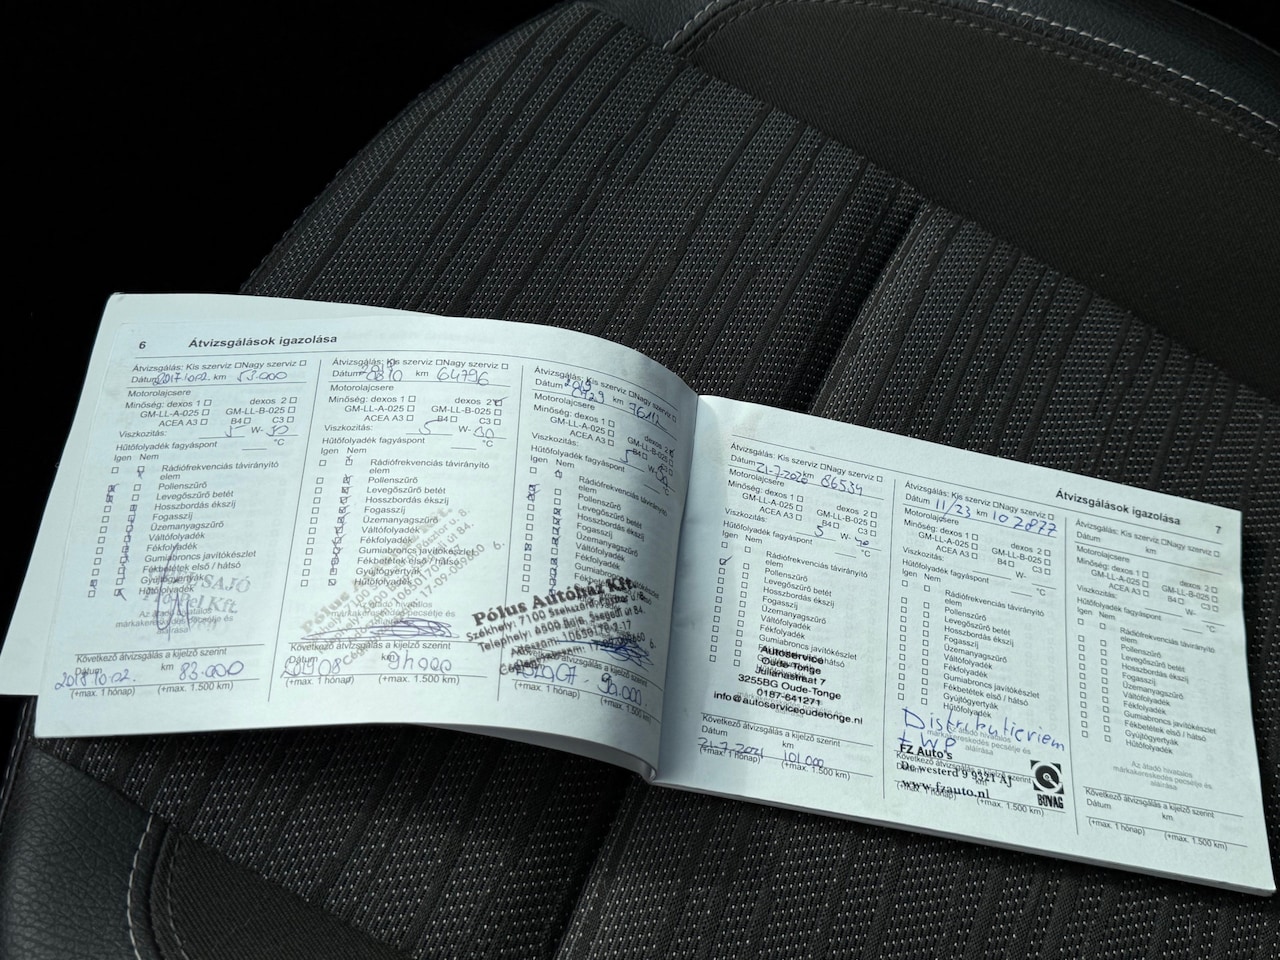 6 Átvizsgálások igazolása
Átvizsgálás: Kis szerviz □ Nagy szerviz □
Dátum 2017.10.02. km 53.000
Motorolajcsere
Minőség: dexos 1 □ dexos 2 □
GM-LL-A-025 □ GM-LL-B-025 □
ACEA A3 □ B4 □ C3 □
Viszkozitás: 5 W- 30
Hűtőfolyadék fagyáspont °C
Igen Nem
Rádiófrekvenciás távirányító
elem
Pollenszűrő
Levegőszűrő betét
Hosszbordás ékszíj
Fogasszíj
Üzemanyagszűrő
Váltófolyadék
Fékfolyadék
Gumiabroncs javítókészlet
Fékbetétek első / hátsó
Gyújtógyertyák
Hűtőfolyadék
SAJÓ
Kft
Az átadó hivatalos
márkakereskedés pecsétje és
aláírása
Következő átvizsgálás a kijelző szerint
Dátum km
2018.10.02. 83.000
(+max. 1 hónap) (+max. 1.500 km)
Átvizsgálás: Kis szerviz □ Nagy szerviz □
Dátum km 64796
Motorolajcsere
Minőség: dexos 1 □ dexos 2 □
GM-LL-A-025 □ GM-LL-B-025 □
ACEA A3 □ B4 □ C3 □
Viszkozitás: 5 W- 30
Hűtőfolyadék fagyáspont °C
Igen Nem
Rádiófrekvenciás távirányító
elem
Pollenszűrő
Levegőszűrő betét
Hosszbordás ékszíj
Fogasszíj
Üzemanyagszűrő
Váltófolyadék
Fékfolyadék
Gumiabroncs javítókészlet
Fékbetétek első / hátsó
Gyújtógyertyák
Hűtőfolyadék
Következő átvizsgálás a kijelző szerint
Dátum km
(+max. 1 hónap) (+max. 1.500 km)
Átvizsgálás: Kis szerviz □ Nagy szerviz □
Dátum 2019 0729 km 76112
Motorolajcsere
Minőség: dexos 1 □ dexos 2 □
GM-LL-A-025 □ GM-LL-B-025 □
ACEA A3 □ B4 □ C3 □
Viszkozitás: 5 W- 30
Hűtőfolyadék fagyáspont °C
Igen Nem
Rádiófrekvenciás távirányító
elem
Pollenszűrő
Levegőszűrő betét
Hosszbordás ékszíj
Fogasszíj
Üzemanyagszűrő
Váltófolyadék
Fékfolyadék
Pólus Autóház Kft
Székhely: 7100 Szekszárd
Telephely: 6500 Baja, Szegedi út 84.
Adószám: 10639178-2-17
Következő átvizsgálás a kijelző szerint
90.000
(+max. 1 hónap) (+max. 1.500 km)
Átvizsgálások igazolása 7
Átvizsgálás: Kis szerviz □ Nagy szerviz □
Dátum 21-7-2020 km 86534
Motorolajcsere
Minőség: dexos 1 □ dexos 2 □
GM-LL-A-025 □ GM-LL-B-025 □
ACEA A3 □ B4 □ C3 □
Viszkozitás: 5 W- 30
Hűtőfolyadék fagyáspont °C
Igen Nem
Rádiófrekvenciás távirányító
elem
Pollenszűrő
Levegőszűrő betét
Hosszbordás ékszíj
Fogasszíj
Üzemanyagszűrő
Váltófolyadék
Fékfolyadék
Gumiabroncs javítókészlet
Autoservice
Oude-Tonge
Julianastraat 7
3255BG Oude-Tonge
0187-641271
info@autoserviceoudetonge.nl
Következő átvizsgálás a kijelző szerint
Dátum km
21-7-2021 101.000
(+max. 1 hónap) (+max. 1.500 km)
Átvizsgálás: Kis szerviz □ Nagy szerviz □
Dátum 11/23 km 102877
Motorolajcsere
Minőség: dexos 1 □ dexos 2 □
GM-LL-A-025 □ GM-LL-B-025 □
ACEA A3 □ B4 □ C3 □
Viszkozitás: W-
Hűtőfolyadék fagyáspont °C
Igen Nem
Rádiófrekvenciás távirányító
elem
Pollenszűrő
Levegőszűrő betét
Hosszbordás ékszíj
Fogasszíj
Üzemanyagszűrő
Váltófolyadék
Fékfolyadék
Gumiabroncs javítókészlet
Fékbetétek első / hátsó
Gyújtógyertyák
Hűtőfolyadék
Distributieriem
+ WP
FZ Auto's
De westerd 9 9321 AJ
www.fzauto.nl
BOVAG
Következő átvizsgálás a kijelző szerint
(+max. 1 hónap) (+max. 1.500 km)
Átvizsgálás: Kis szerviz □ Nagy szerviz □
Dátum km
Motorolajcsere
Minőség: dexos 1 □ dexos 2 □
GM-LL-A-025 □ GM-LL-B-025 □
ACEA A3 □ B4 □ C3 □
Viszkozitás: W-
Hűtőfolyadék fagyáspont °C
Igen Nem
Rádiófrekvenciás távirányító
elem
Pollenszűrő
Levegőszűrő betét
Hosszbordás ékszíj
Fogasszíj
Üzemanyagszűrő
Váltófolyadék
Fékfolyadék
Gumiabroncs javítókészlet
Fékbetétek első / hátsó
Gyújtógyertyák
Hűtőfolyadék
Az átadó hivatalos
márkakereskedés pecsétje és
aláírása
Következő átvizsgálás a kijelző szerint
Dátum km
(+max. 1 hónap) (+max. 1.500 km)